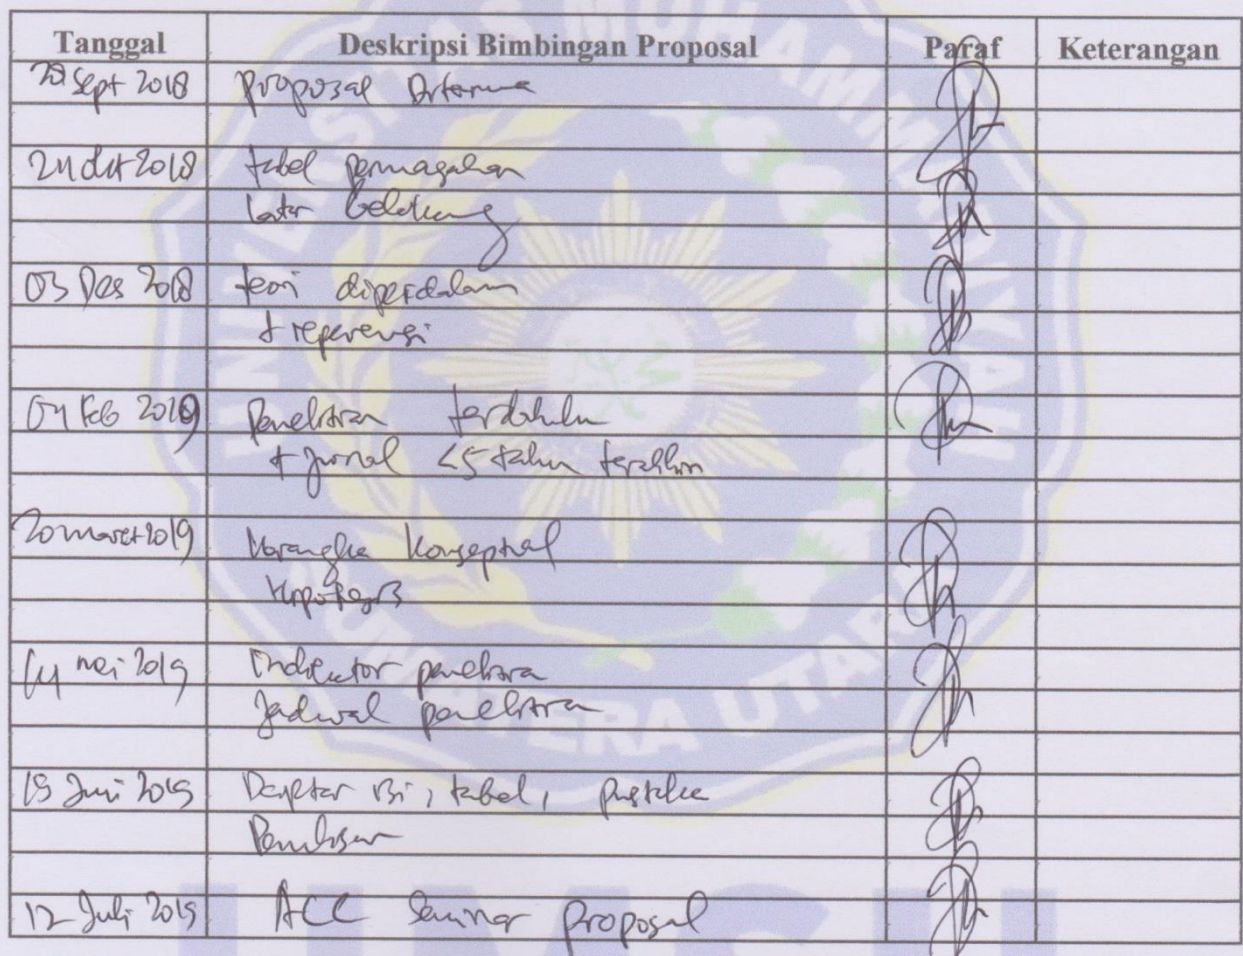 Tanggal Deskripsi Bimbingan Proposal Paraf Keterangan
Sept 2018 Proposal Diterima
24 Okt 2018 tabel permasalahan
latar belakang
03 Des 2018 teori diperdalam
+ reperensi
04 Feb 2019 Penelitian terdahulu
+ jurnal <5 tahun terakhir
20 maret 2019 Kerangka Konseptual
Hipotesis
mei 2019 Indikator penelitian
Jadwal penelitian
Juni 2019 Daptar isi, tabel, pustaka
Penulisan
12 Juli 2019 ACC Seminar proposal
UNIVERSITAS MUHAMMADIYAH
SUMATERA UTARA
UMSU